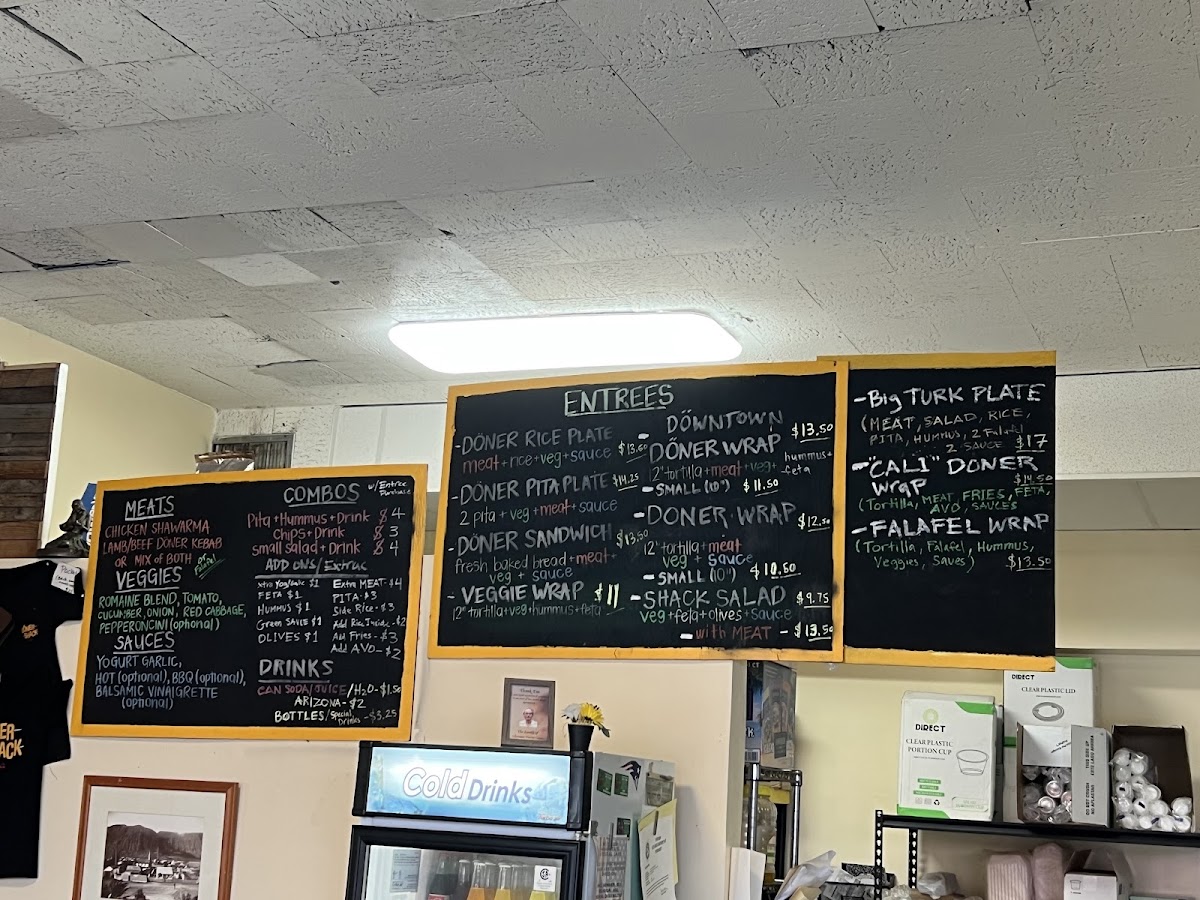 MEATS
CHICKEN SHAWARMA
LAMB/BEEF DÖNER KEBAB
OR MIX OF BOTH or Falafel
VEGGIES
ROMAINE BLEND, TOMATO,
CUCUMBER, ONION, RED CABBAGE,
PEPPERONCINI (optional)
SAUCES
YOGURT GARLIC,
HOT (optional), BBQ (optional),
BALSAMIC VINAIGRETTE
(optional)
COMBOS w/ Entree Purchase
Pita + Hummus + Drink $ 4
Chips + Drink $ 3
Small salad + Drink $ 4
ADD ONS / Extras
$1
FETA $1
HUMMUS $1
Green SAUCE $1
OLIVES $1
Extra MEAT - $4
PITA - $3
Side Rice - $3
Add Rice - $2
Add Fries - $3
Add AVO - $2
DRINKS
CAN SODA/JUICE/H2O - $1.50
ARIZONA - $2
BOTTLES/Special Drinks - $3.25
ENTREES
- DÖNER RICE PLATE
meat + rice + veg + sauce $13.50
- DÖNER PITA PLATE $14.25
2 pita + veg + meat + sauce
- DÖNER SANDWICH $13.50
fresh baked bread + meat +
veg + sauce
- VEGGIE WRAP $11
12" tortilla + veg + hummus + feta
- DÖWNTOWN
DÖNER WRAP $13.50
12" tortilla + meat + veg + hummus + feta
- SMALL (10") $11.50
- DONER WRAP $12.50
12" tortilla + meat
veg + sauce
- SMALL (10") $10.50
- SHACK SALAD $9.75
veg + feta + olives + sauce
- with MEAT - $13.50
- Big TURK PLATE
(MEAT, SALAD, RICE,
PITA, HUMMUS, 2 Falafel
2 SAUCE $17
- "CALI" DONER
Wrap $14.50
(Tortilla, MEAT, FRIES, FETA,
AVO, SAUCES
- FALAFEL WRAP
(Tortilla, Falafel, Hummus,
Veggies, Saues) $13.50
Cold Drinks
Thank You
DIRECT
CLEAR PLASTIC
PORTION CUP
DIRECT
CLEAR PLASTIC LID